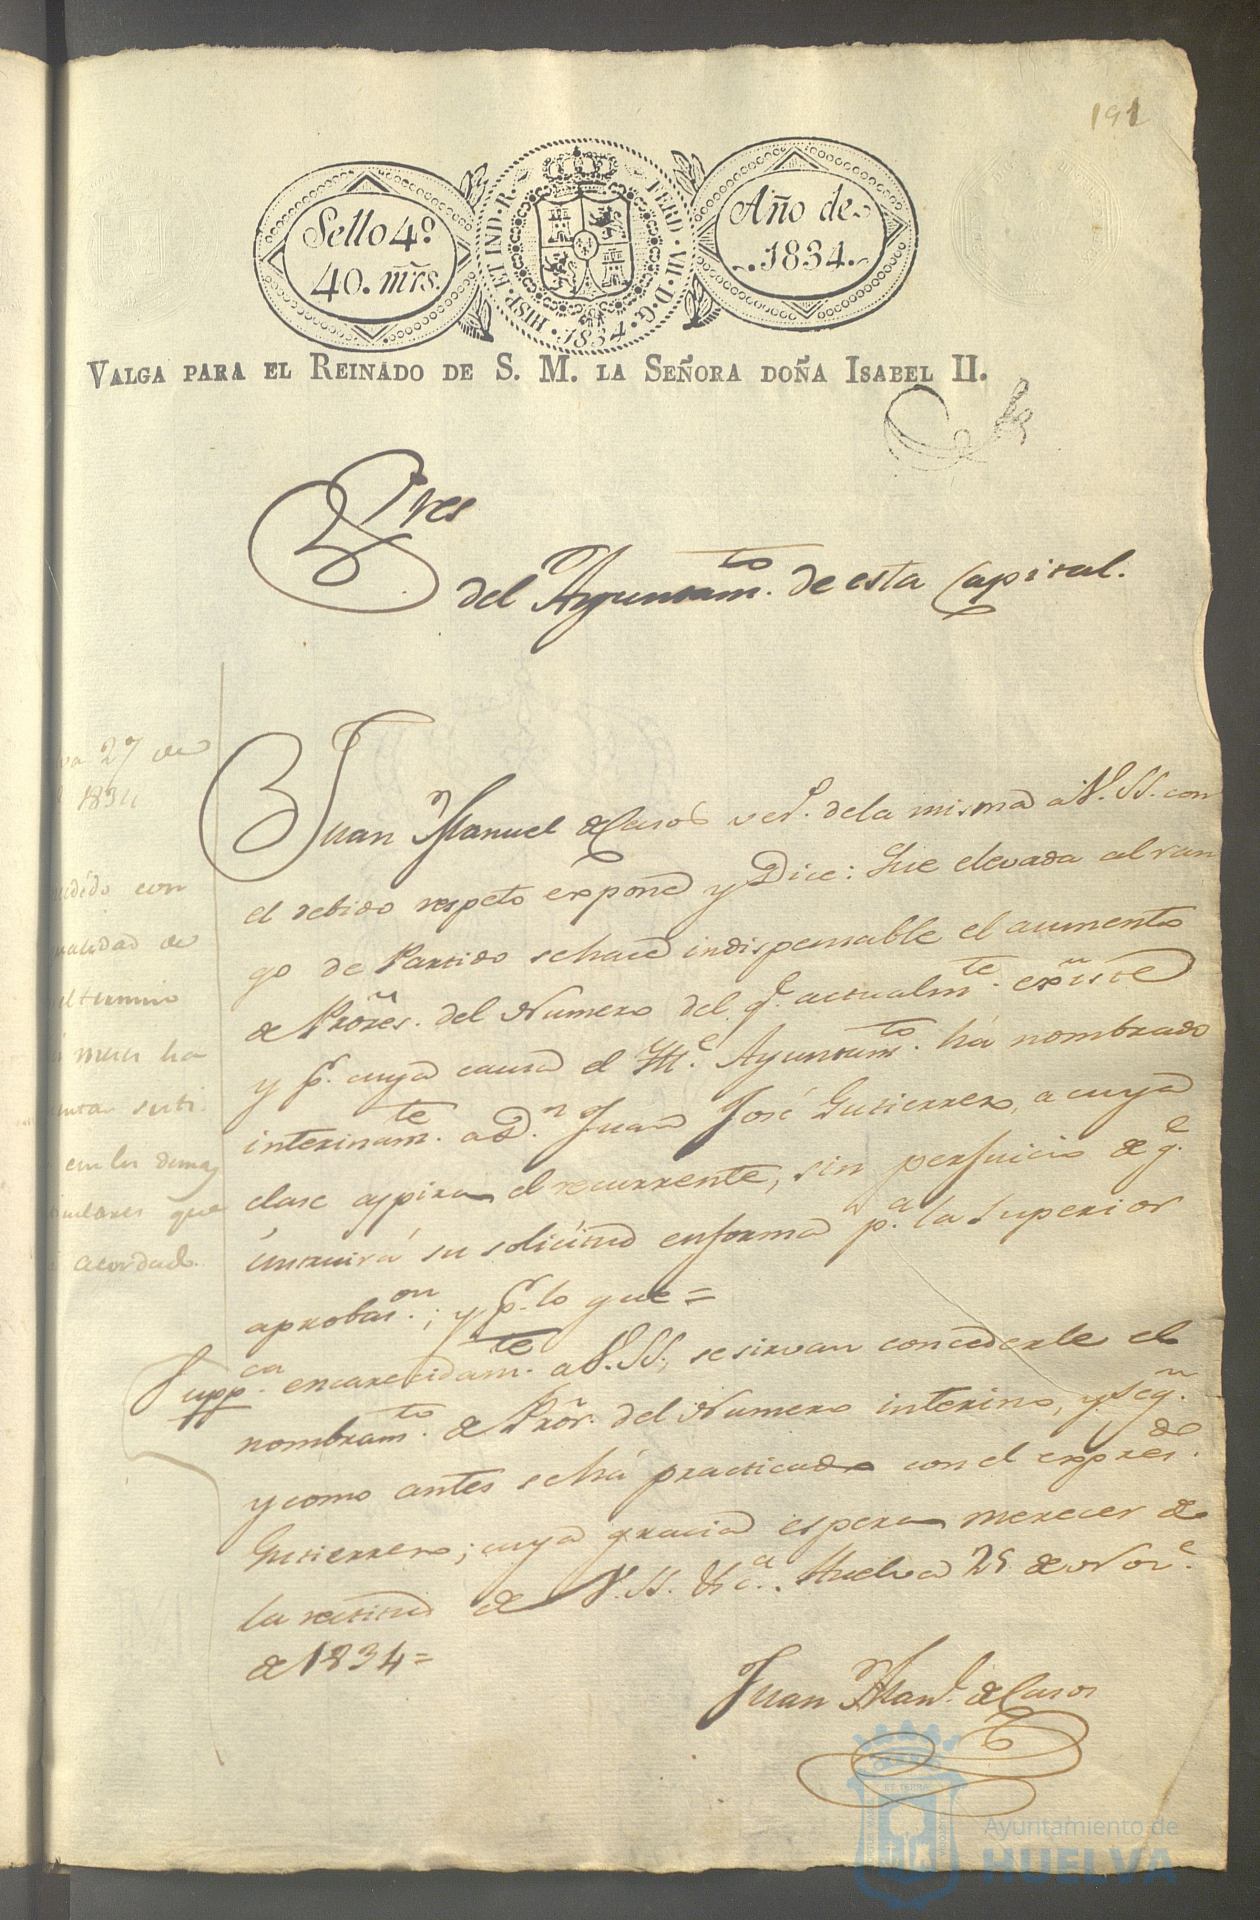 191
Sello 4.º
40. mrs.
HISP. ET IND. R. FERD. VII. D. G. 1834.
Año de
1834.
VALGA PARA EL REINADO DE S. M. LA SEÑORA DOÑA ISABEL II.
Sres
del Ayuntam.to de esta Capital.
Juan Manuel de Casos vec.º de la misma a V. SS. con
el debido respeto expone y Dice: Que elevada al ran
go de Partido se hace indispensable el aumento
de Prores. del Numero del q.e actualm.te existe
y p.r cuya causa el Ytt.e Ayuntam.to ha nombrado
interinam.te a D.n Juan José Gutierrez, a cuya
clase aspira el recurrente, sin perjuicio de q.e
instruirá su solicitud en forma p.a la Superior
aprobac.on; y p.r lo que =
Supp.ca encarecidam.te a V. SS. se sirvan concederle el
nombram.to de Pror. del Numero interino, y seg.n
y como antes se há practicado con el expres.do
Gutierrez; cuya gracia espera merecer de
la rectitud de V. SS. &c.a. Huelva 25 de Nov.e
de 1834 =
Juan Man.l de Casos
va 27 de
1834
con
validad de
termino
ha
en los demas
que
acordado.
Ayuntamiento de
HUELVA